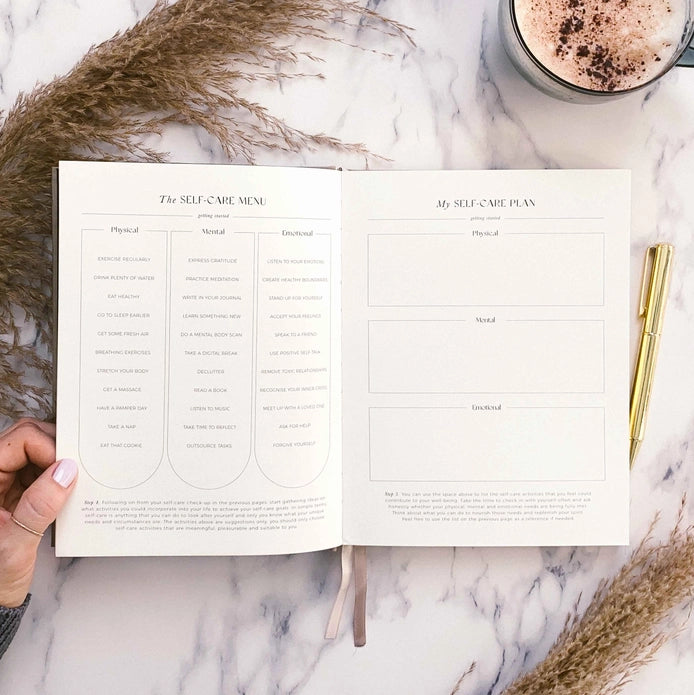 The SELF-CARE MENU
getting started
Physical
EXERCISE REGULARLY
DRINK PLENTY OF WATER
EAT HEALTHY
GO TO SLEEP EARLIER
GET SOME FRESH AIR
BREATHING EXERCISES
STRETCH YOUR BODY
GET A MASSAGE
HAVE A PAMPER DAY
TAKE A NAP
EAT THAT COOKIE
Mental
EXPRESS GRATITUDE
PRACTICE MEDITATION
WRITE IN YOUR JOURNAL
LEARN SOMETHING NEW
DO A MENTAL BODY SCAN
TAKE A DIGITAL BREAK
DECLUTTER
READ A BOOK
LISTEN TO MUSIC
TAKE TIME TO REFLECT
OUTSOURCE TASKS
Emotional
LISTEN TO YOUR EMOTIONS
CREATE HEALTHY BOUNDARIES
STAND UP FOR YOURSELF
ACCEPT YOUR FEELINGS
SPEAK TO A FRIEND
USE POSITIVE SELF TALK
REMOVE TOXIC RELATIONSHIPS
RECOGNISE YOUR INNER CRITIC
MEET UP WITH A LOVED ONE
ASK FOR HELP
FORGIVE YOURSELF
Step 1. Following on from your self-care check-up in the previous pages, start gathering ideas on
what activities you could incorporate into your life to achieve your self-care goals. In simple terms,
self-care is anything that you can do to look after yourself and only you know what your unique
needs and circumstances are. The activities above are suggestions only, you should only choose
self care activities that are meaningful, pleasurable and suitable to you.
My SELF-CARE PLAN
getting started
Physical
Mental
Emotional
Step 2. You can use the space above to list the self-care activities that you feel could
contribute to your well-being. Take the time to check in with yourself often and ask
honestly whether your physical, mental and emotional needs are being fully met.
Think about what you can do to nourish those needs and replenish your spirit.
Feel free to use the list on the previous page as a reference if needed.